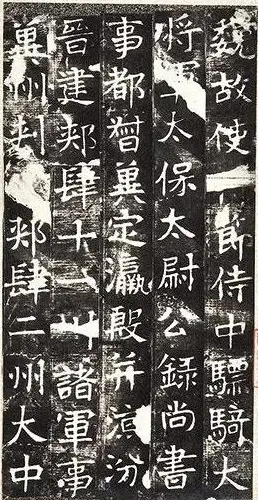 魏故使節侍中驃騎大
將軍太保太尉公錄尚書
事都督冀定瀛殷并凉汾
晉建郟肆十一州諸軍事
冀州刺郟肆二州大中